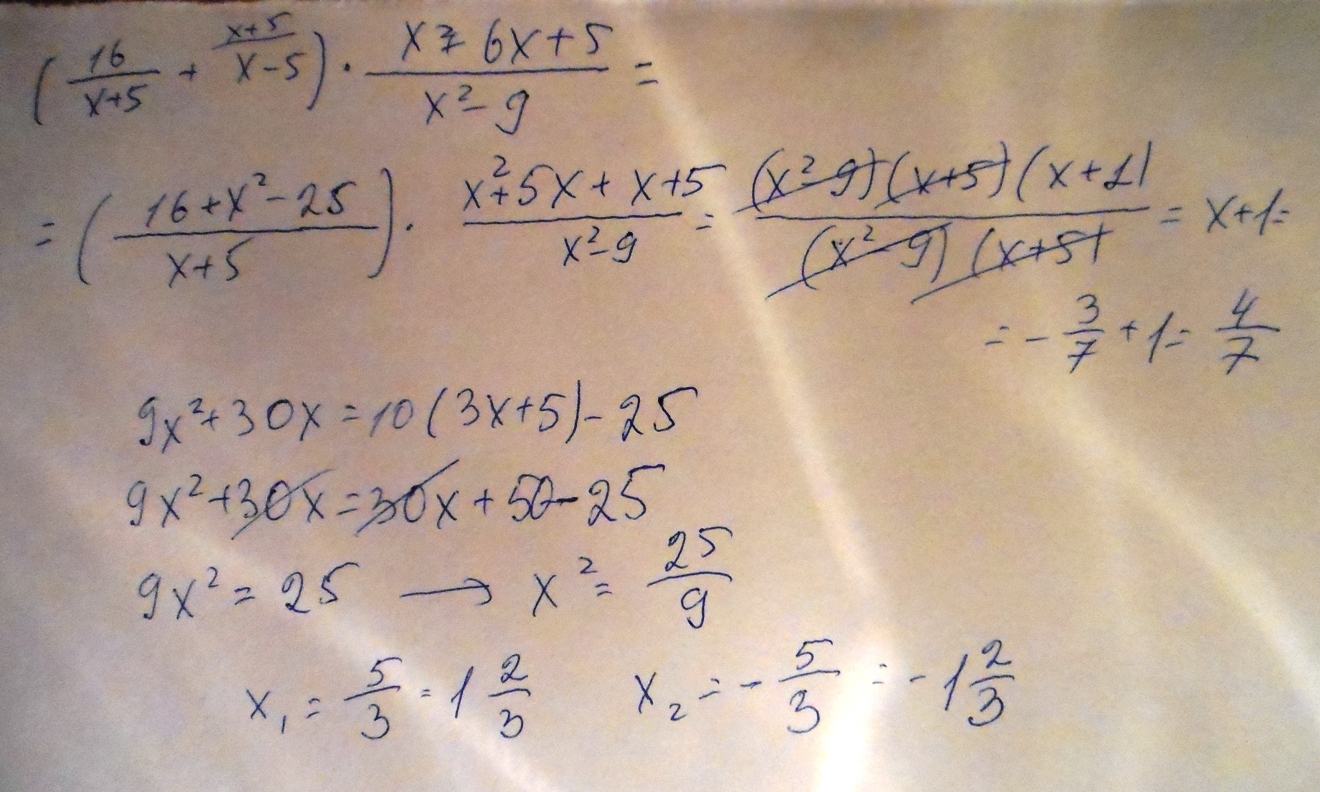 (16/(x+5) + (x+5)/(x-5)) · (x²+6x+5)/(x²-9) =
= ((16+x²-25)/(x+5)) · (x²+5x+x+5)/(x²-9) = ((x²-9)(x+5)(x+1))/((x²-9)(x+5)) = x+1=
= -3/7 + 1 = 4/7
9x²+30x=10(3x+5)-25
9x²+30x=30x+50-25
9x²=25 → x²=25/9
x₁=5/3=1 2/3 x₂=-5/3=-1 2/3